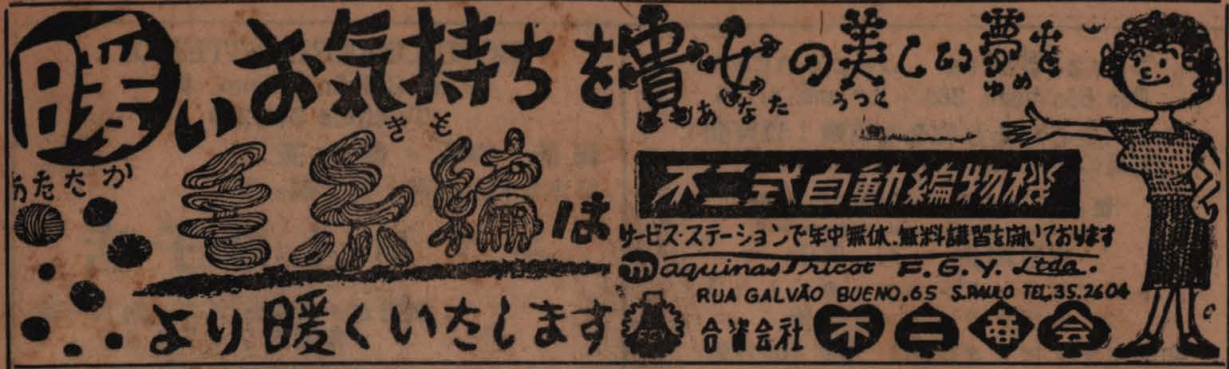 暖いお気持ちを
あたたか
きも
毛糸編は
より暖くいたします
貴女の美しい夢を
あなた
うつく
ゆめ
不二式自動編物機
サービス・ステーションで年中無休、無料講習を開いております
Maquinas Tricot F.G.Y. Ltda.
RUA GALVÃO BUENO.65 S.PAULO TEL.35.2604
合資会社 不二商会